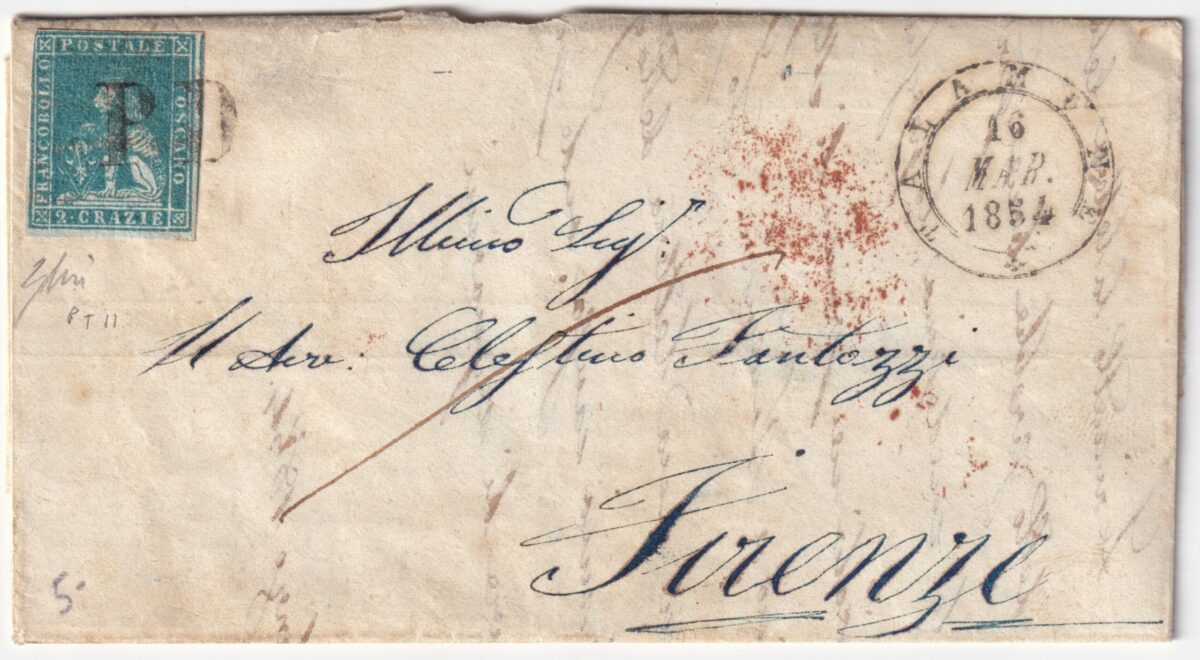 FRANCOBOLLO POSTALE TOSCANO
2. CRAZIE
P D
TALAMONE
16
MAR.
1854
Illmo Sigr.
Il Avv: Celestino Fantozzi
Firenze
PT 11
5